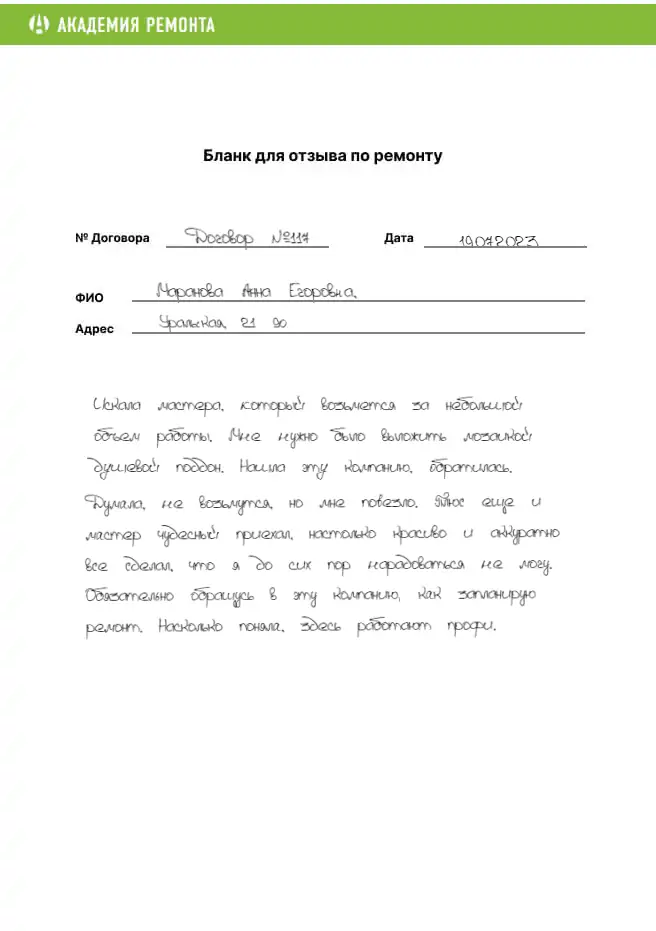 АКАДЕМИЯ РЕМОНТА
Бланк для отзыва по ремонту
№ Договора Договор №117 Дата 19072023
ФИО Маранова Анна Егоровна
Адрес Уральская 21 90
Искала мастера, который возьмется за небольшой
объем работы. Мне нужно было выложить мозаикой
душевой поддон. Нашла эту компанию, обратилась.
Думала, не возьмутся, но мне повезло. Плюс еще и
мастер чудесный приехал, настолько красиво и аккуратно
все сделал, что я до сих пор нарадоваться не могу.
Обязательно обращусь в эту компанию, как запланирую
ремонт. Насколько поняла, здесь работают профи.